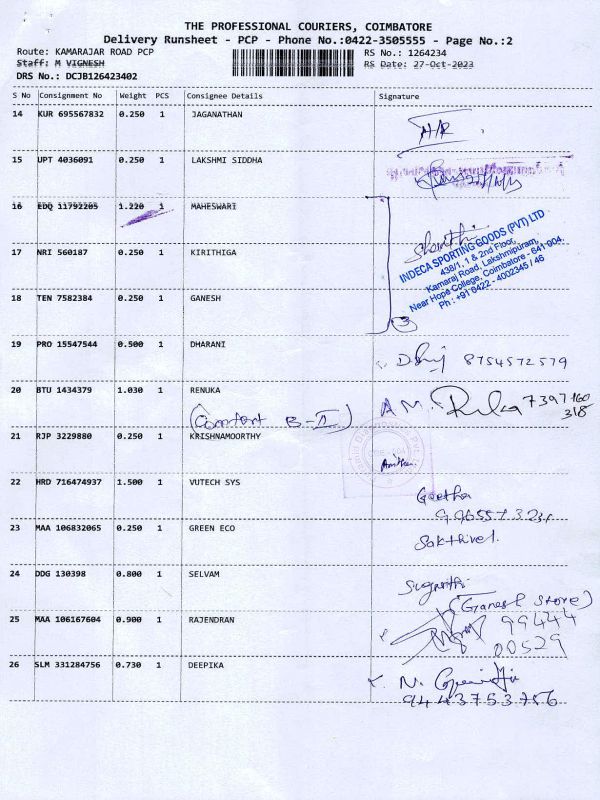 THE PROFESSIONAL COURIERS, COIMBATORE
Delivery Runsheet - PCP - Phone No.:0422-3505555 - Page No.:2
Route: KAMARAJAR ROAD PCP RS No.: 1264234
Staff: M VIGNESH RS Date: 27-Oct-2023
DRS No.: DCJB126423402
S No Consignment No Weight PCS Consignee Details Signature
14 KUR 695567832 0.250 1 JAGANATHAN
15 UPT 4036091 0.250 1 LAKSHMI SIDDHA
16 EDQ 11792205 1.220 1 MAHESWARI
Shanthi
INDECA SPORTING GOODS (PVT) LTD
438/1, 1 & 2nd Floor,
Kamaraj Road, Lakshmipuram,
Near Hope College, Coimbatore - 641 004.
Ph : +91 0422 - 4002345 / 46
17 NRI 560187 0.250 1 KIRITHIGA
18 TEN 7582384 0.250 1 GANESH
3
19 PRO 15547544 0.500 1 DHARANI 8754572579
20 BTU 1434379 1.030 1 RENUKA
(Comfort B-II) A M. 7397160
318
21 RJP 3229880 0.250 1 KRISHNAMOORTHY
22 HRD 716474937 1.500 1 VUTECH SYS
Geetha
23 MAA 106832065 0.250 1 GREEN ECO
Sakthivel.
24 DDG 130398 0.800 1 SELVAM
(Ganesh Store)
25 MAA 106167604 0.900 1 RAJENDRAN 99444
00529
26 SLM 331284756 0.730 1 DEEPIKA
9443753756